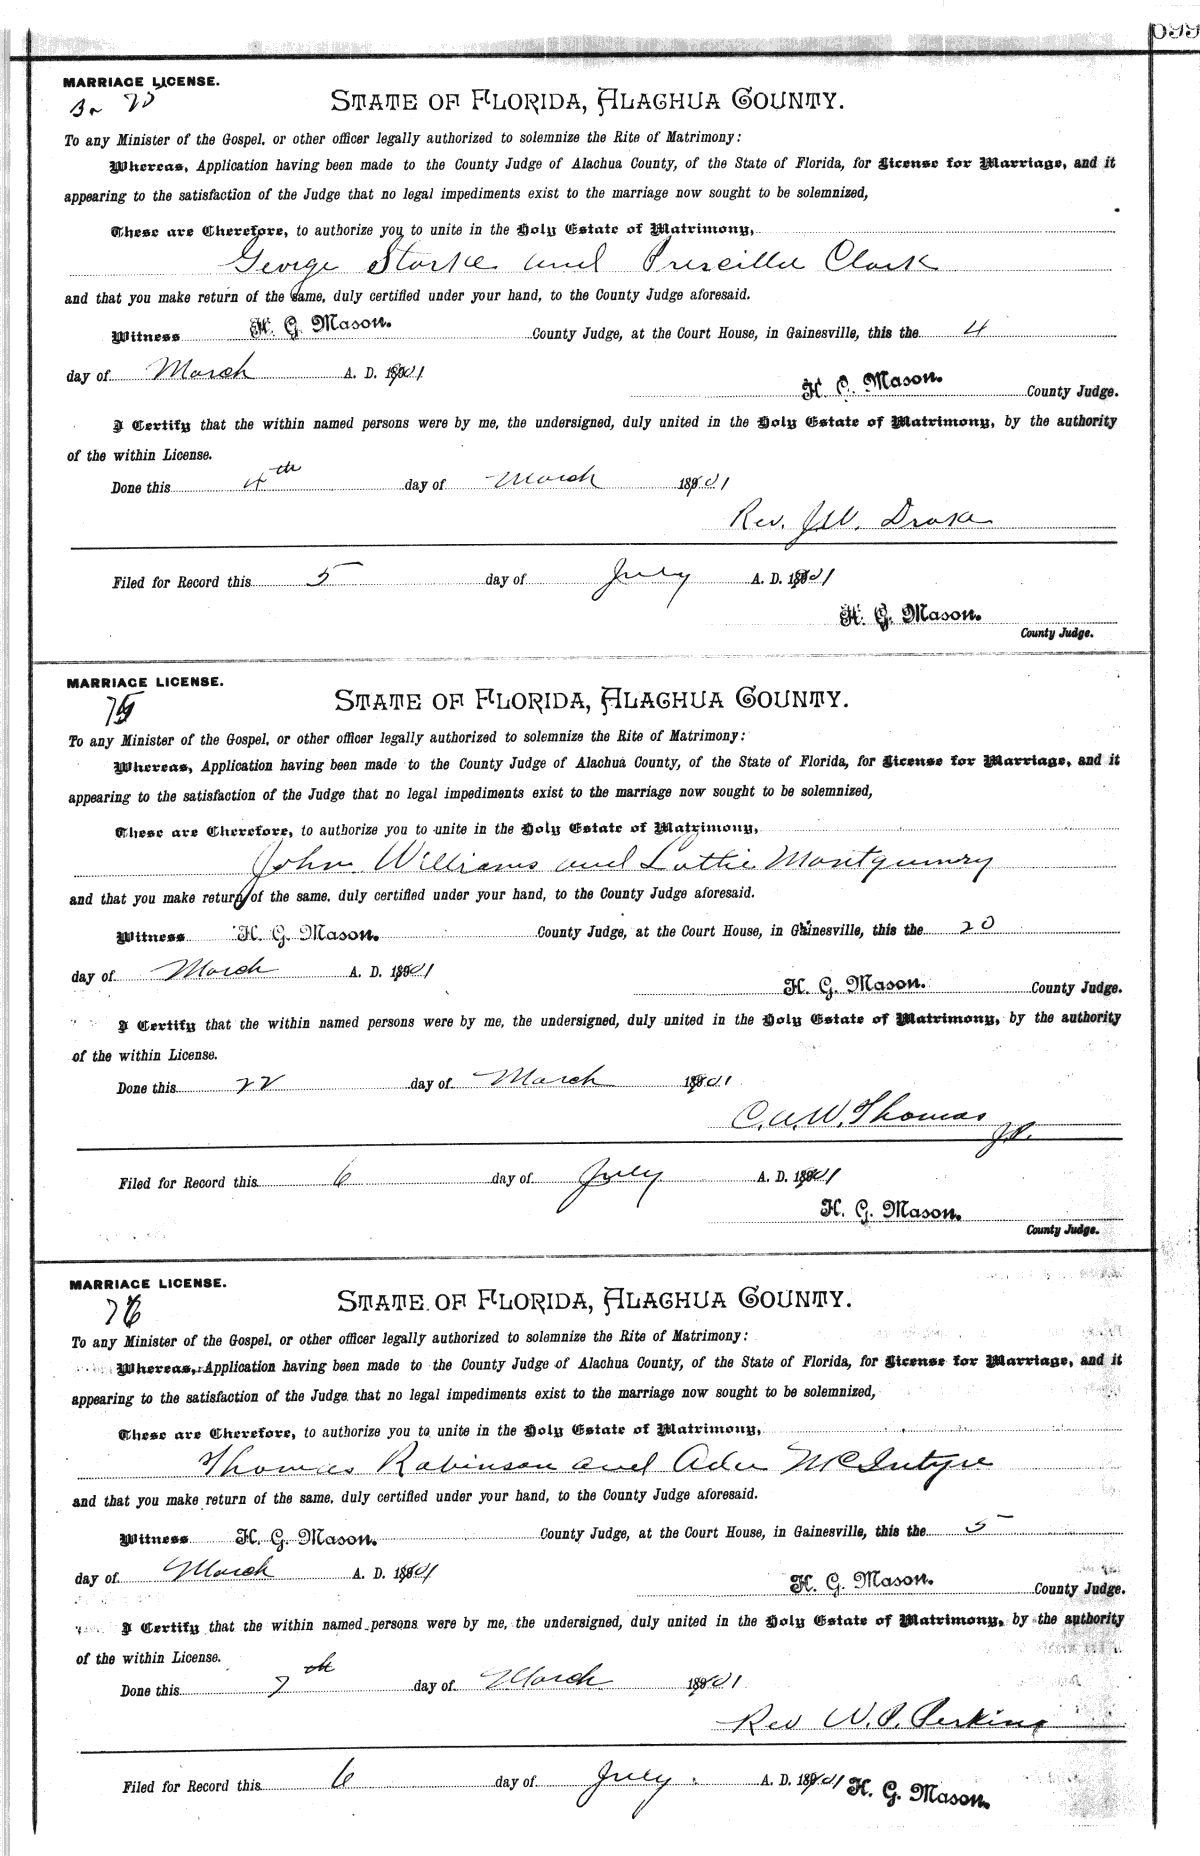 699
MARRIAGE LICENSE.
STATE OF FLORIDA, ALACHUA COUNTY.
To any Minister of the Gospel, or other officer legally authorized to solemnize the Rite of Matrimony:
Whereas, Application having been made to the County Judge of Alachua County, of the State of Florida, for License for Marriage, and it
appearing to the satisfaction of the Judge that no legal impediments exist to the marriage now sought to be solemnized,
These are Therefore, to authorize you to unite in the Holy Estate of Matrimony,
George Starke and Priscilla Clark
and that you make return of the same, duly certified under your hand, to the County Judge aforesaid.
Witness H. G. Mason. County Judge, at the Court House, in Gainesville, this the 4
day of March A. D. 1901
H. G. Mason. County Judge.
I Certify that the within named persons were by me, the undersigned, duly united in the Holy Estate of Matrimony, by the authority
of the within License.
Done this 4th day of March 1901
Rev. J.W. Drake
Filed for Record this 5 day of July A. D. 1901
H. G. Mason.
County Judge.
MARRIAGE LICENSE.
75
STATE OF FLORIDA, ALACHUA COUNTY.
To any Minister of the Gospel, or other officer legally authorized to solemnize the Rite of Matrimony:
Whereas, Application having been made to the County Judge of Alachua County, of the State of Florida, for License for Marriage, and it
appearing to the satisfaction of the Judge that no legal impediments exist to the marriage now sought to be solemnized,
These are Therefore, to authorize you to unite in the Holy Estate of Matrimony,
John Williams and Lottie Montgumry
and that you make return of the same, duly certified under your hand, to the County Judge aforesaid.
Witness H. G. Mason. County Judge, at the Court House, in Gainesville, this the 20
day of March A. D. 1901
H. G. Mason. County Judge.
I Certify that the within named persons were by me, the undersigned, duly united in the Holy Estate of Matrimony, by the authority
of the within License.
Done this 22 day of March 1901
C.A.W. Thomas
J.P.
Filed for Record this 6 day of July A. D. 1901
H. G. Mason.
County Judge.
MARRIAGE LICENSE.
76
STATE OF FLORIDA, ALACHUA COUNTY.
To any Minister of the Gospel, or other officer legally authorized to solemnize the Rite of Matrimony:
Whereas, Application having been made to the County Judge of Alachua County, of the State of Florida, for License for Marriage, and it
appearing to the satisfaction of the Judge that no legal impediments exist to the marriage now sought to be solemnized,
These are Therefore, to authorize you to unite in the Holy Estate of Matrimony,
Thomas Robinson and Ada McIntyre
and that you make return of the same, duly certified under your hand, to the County Judge aforesaid.
Witness H. G. Mason. County Judge, at the Court House, in Gainesville, this the 5
day of March A. D. 1901
H. G. Mason. County Judge.
I Certify that the within named persons were by me, the undersigned, duly united in the Holy Estate of Matrimony, by the authority
of the within License.
Done this 7th day of March 1901
Rev W. P. Perkins
Filed for Record this 6 day of July A. D. 1901 H. G. Mason.